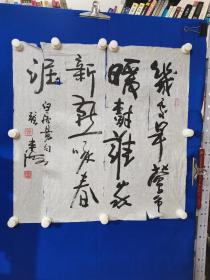 幾處早鶯爭
暖樹誰家
新燕啄春
泥
白居易句